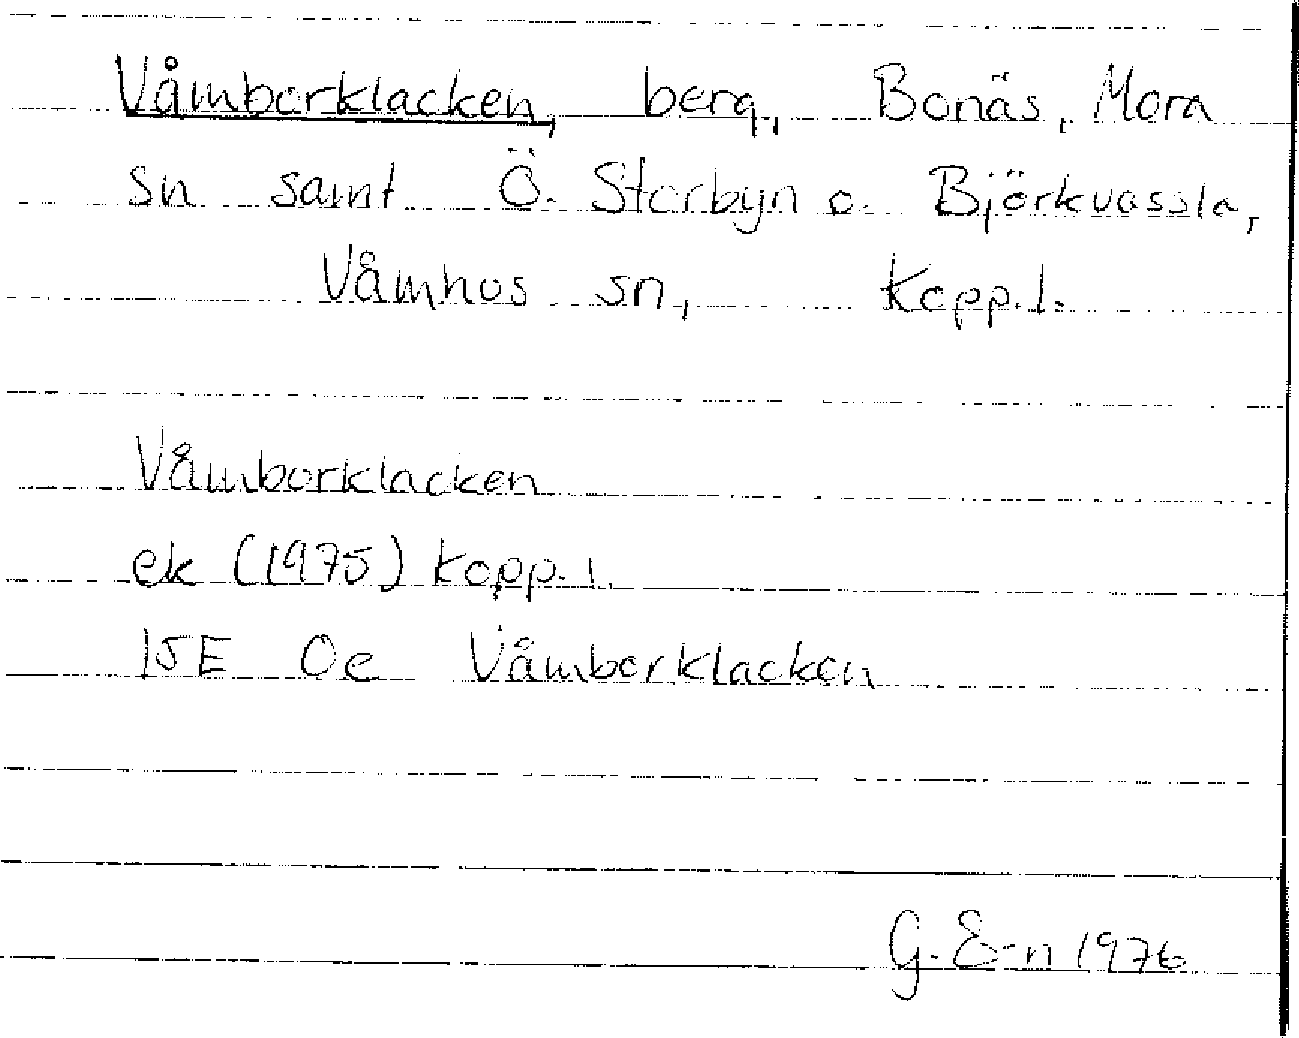 Våmborklacken, berg, Bonäs, Mora
sn samt Ö. Storbyn o. Björkvassla,
Våmhus sn, Kopp.l.
Våmborklacken
ek (1975) Kopp.l.
15E 0e Våmborklacken
G. E-n 1976